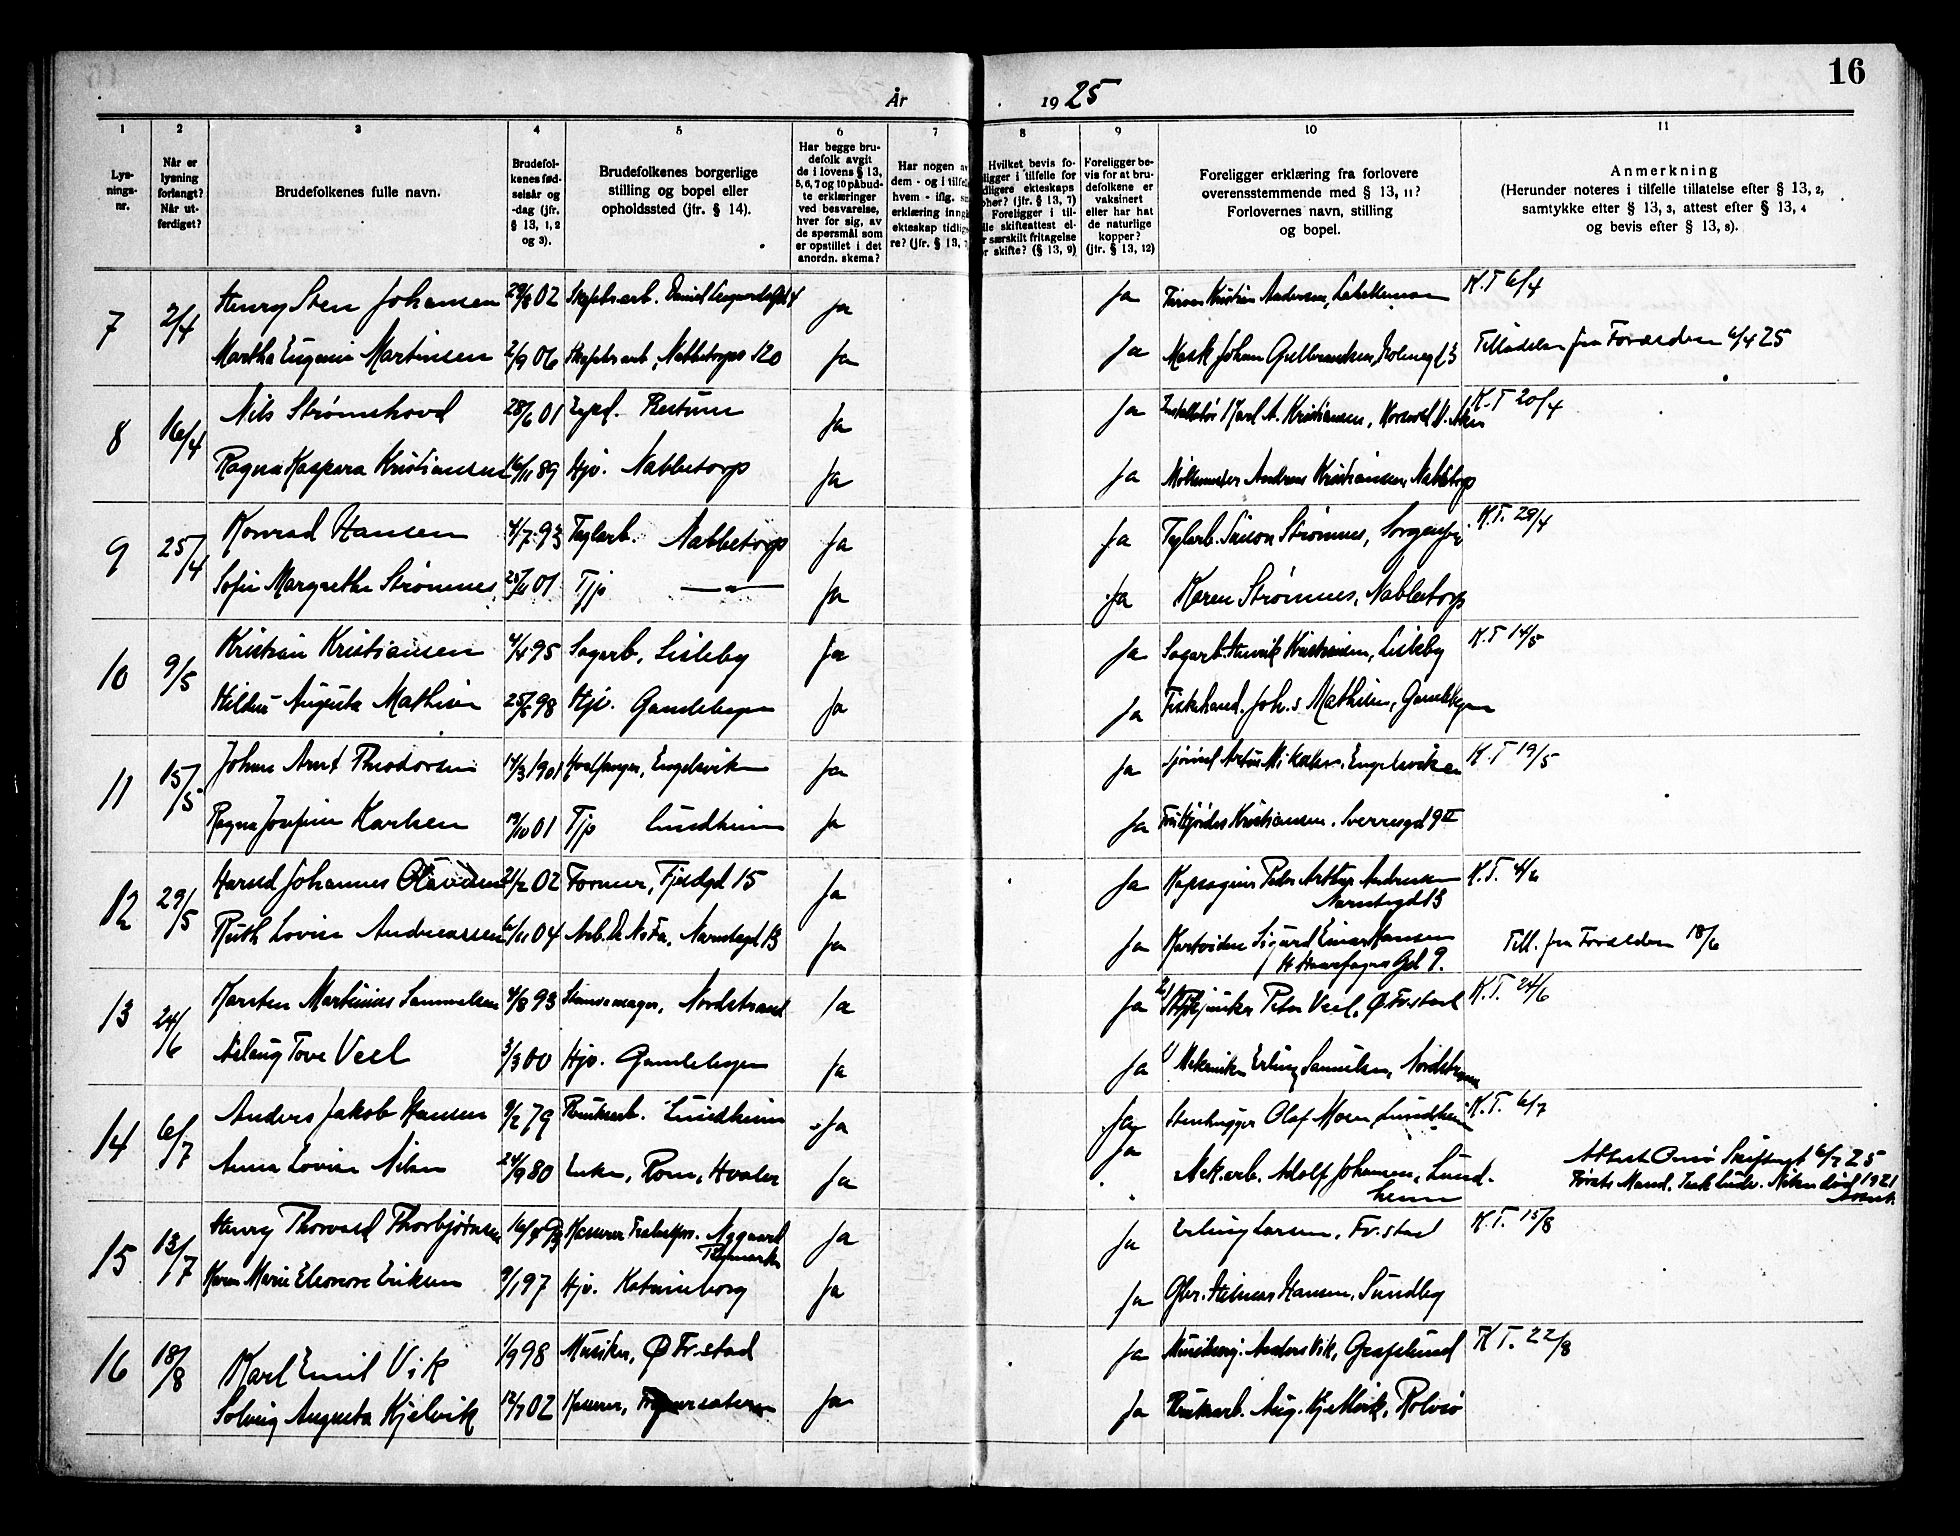 16
År 1925
1 2 3 4 5 6 7 8 9 10 11
Lys-
nings-
nr.
Når er
lysning
forlangt?
Når ut-
ferdiget?
Brudefolkenes fulle navn.
Brudefol-
kenes fød-
selsår og
-dag (jfr.
§ 13, 1, 2
og 3).
Brudefolkenes borgerlige
stilling og bopel eller
opholdssted (jfr. § 14).
Har begge bru-
defolk avgit
de i lovens § 13,
5, 6, 7 og 10 påbud-
te erklæringer
ved besvarelse,
hver for sig, av
de spørsmål som
er opstillet i det
anordn. skema?
Har nogen av
dem - og i tilfel
hvem - iflg.
erklæring inng
ekteskap tidlig
re? (jfr. § 13,
Hvilket bevis fo-
ligger i tilfelle for
dligere ekteskaps
phør? (jfr. § 13, 7)
Foreligger i til-
lle skifteattest el-
r særskilt fritagelse
r skifte? (§ 13, 9)
Foreligger be-
vis for at bru-
defolkene er
vaksinert
eller har hat
de naturlige
kopper?
(jfr. § 13, 12)
Foreligger erklæring fra forlovere
overensstemmende med § 13, 11?
Forlovernes navn, stilling
og bopel.
Anmerkning
(Herunder noteres i tilfelle tillatelse efter § 13, 2,
samtykke efter § 13, 3, attest efter § 13, 4
og bevis efter § 13, 8).
7 2/4 Henry Sten Johansen 29/8 02 Ja Ja Kristian Andersen, K.T 6/4
Martha Eugenie Martinsen 2/9 06 Nabbetorp 120 Ja Ja Mask Johan Gulbrandsen, Tilladelse fra Forældre 6/4 25
8 16/4 Nils Strømshovd 28/6 01 Restum Ja Ja Karl A. Kristiansen, K.T 20/4
Ragna Kaspara Kristiansen 16/11 89 Hjv. Nabbetorp Ja Ja Andreas Kristiansen, Nabbetorp
9 25/4 Konrad Hansen 4/7 93 Teglarb. Nabbetorp Ja Ja Teglarb. Simon Strømnes, Sorgenfri K.T. 29/4
Sofie Margrethe Strømnes 01 Tjp —"— Ja Ja Karen Strømnes, Nabbetorp
10 9/5 Kristian Kristiansen 95 Sagarb, Lisleby Ja Ja Sagarb. Henrik Kristiansen, Lisleby K.T 14/5
Hildur Augusta Mathisen 98 Hjv. Gamlebyen Ja Ja Fiskehand. Joh.s Mathisen, Gamlebyen
11 15/5 Johan Arnt Theodorsen 14/3 1901 Hvalfanger, Engelsviken Ja Ja Engelsviken K.T 19/5
Ragna Josefine Karlsen 19/10 01 Tjp Lundheim Ja Ja Kristiansen. Sverresgd 9 II
12 29/5 Harald Johannes Olavesen 21/2 02 Former, Fjeldgd 15 Ja Ja Peder Arthur Andreassen K.T.
Narntegd 13
Ruth Lovise Andreassen 6/11 04 Narntegd 13 Ja Ja Sigurd Einar Hansen Till. fra Forældre 18/6
H Haarfagres Gd 9.
13 24/6 Karsten Martinius Samuelsen 4/8 93 Nordstrand Ja Ja 2) Peter Veel, Ø Fr.stad K.T. 24/6
Aslaug Tove Veel 3/3 00 Hjv. Gamlebyen Ja Ja 1) Mekaniker Erling Samuelsen, Nordstrand
14 6/7 Anders Jakob Hansen 9/2 79 Bruksarb. Lundheim Ja Ja Stenhugger Olaf Moen, Lundheim K.T. 6/7
Anna Lovise Nilsen 24/9 80 Enke, Rom, Hvaler Ja Ja Mek.arb. Adolf Johansen, Lund-
heim
Attest Onsø Skifteret 6/7 25
Første Mand. Ludv. Nilsen død 1921
15 13/7 Henry Thorvald Thorbjørnsen Nygaard Ja Ja Erling Larsen, Fr.stad K.T. 15/8
Karen Marie Eleonore Eriksen 9/1 97 Hjv. Katrineborg Ja Ja Hansen, Sundby
16 18/8 Karl Emil Vik 1/9 98 Musiker, Ø Fr.stad Ja Anders Vik, Greåslund K.T. 22/8
Solveig Augusta Kjelvik 12/7 02 Ja Ja Bruksarb. Aug. Kjellvik, Rolvsø